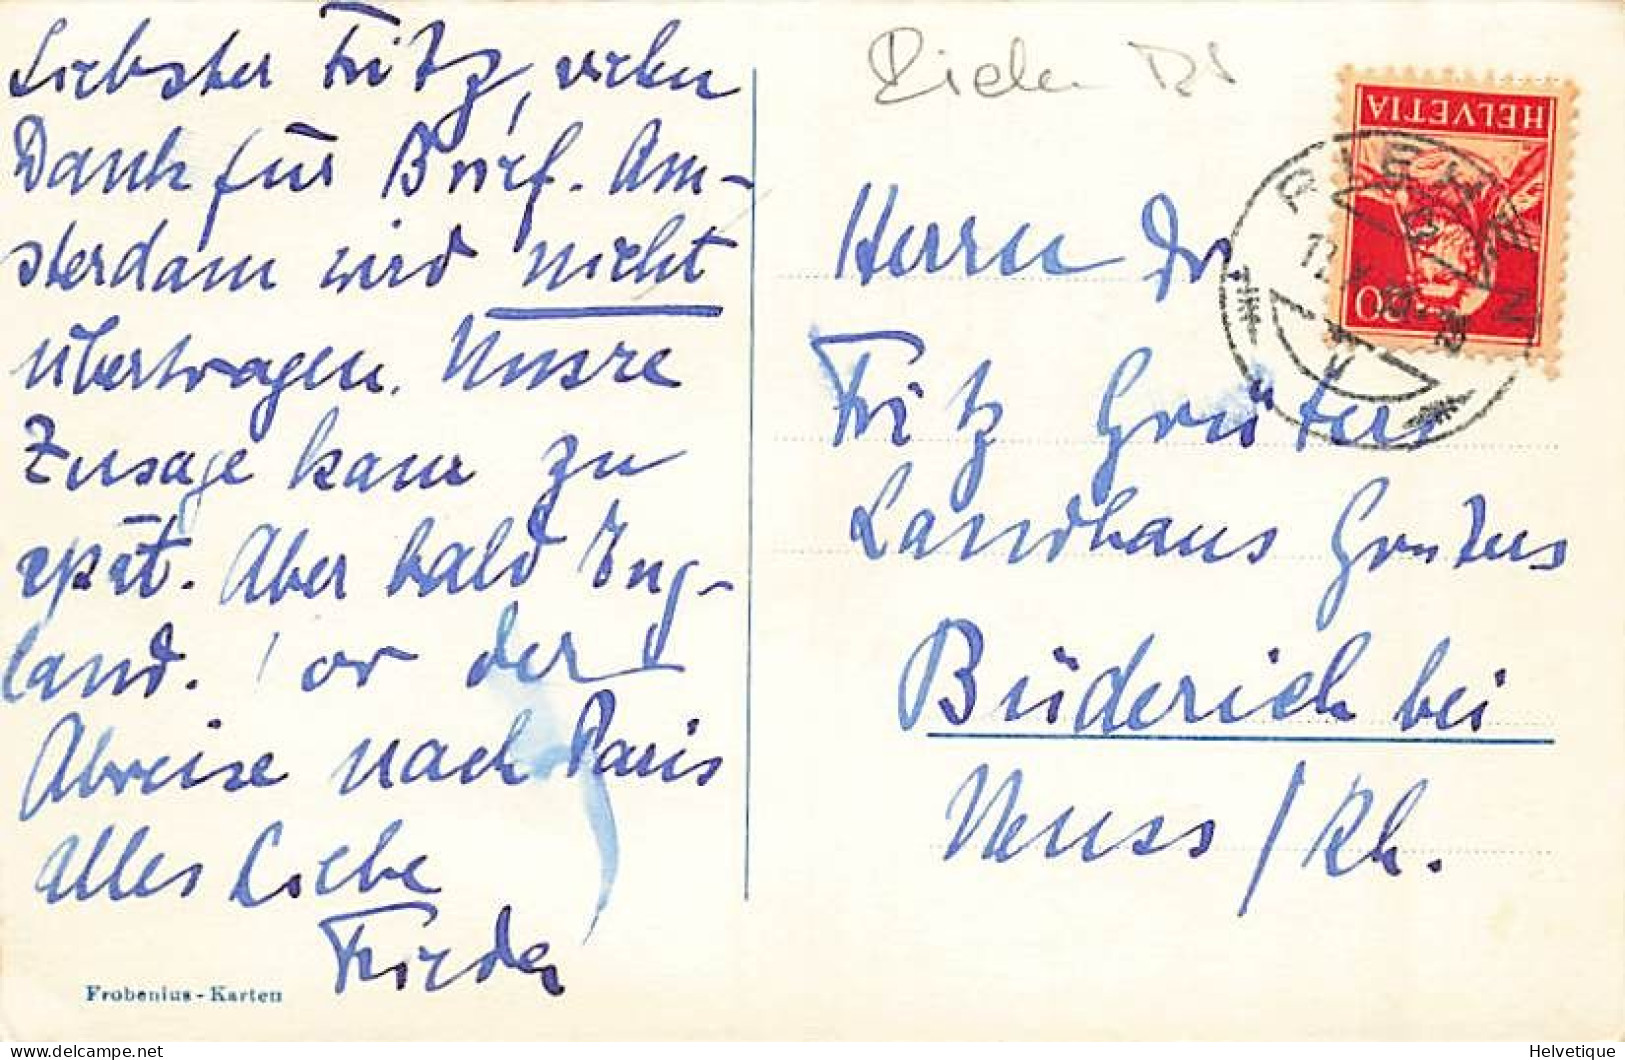 Liebster Fritz, vielen
Dank für Brief. Am-
sterdam wird nicht
übertragen. Unsre
Zusage kam zu
spät. Aber bald Eng-
land. Vor der
Abreise nach Paris
Alles Liebe
Frieda
Frobenius-Karten
HELVETIA
20
RIEHEN
Herrn Dr
Fritz Grüters
Landhaus Grüters
Büderich bei
Neuss/Rh.
Helvetique